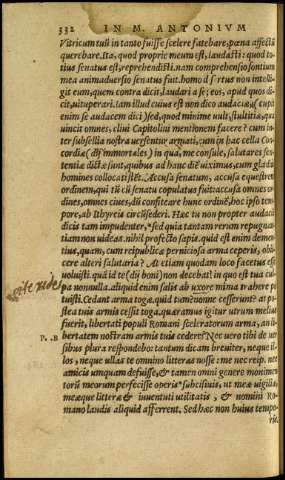 332 IN M. ANTONIVM
Vitricum tuū in tanto fuisse scelere fatebare, pœna affectū
querebare. Ita, quod proprie meum est, laudasti: quod to-
tius senatus est, reprehendisti. nam comprehensio sontium
mea animaduersio senatus fuit. homo disertus non intelli-
git eum, quem contra dicit, laudari a se; eos, apud quos di-
cit, uituperari. iam illud cuius est non dico audaciæ (cupit
enim se audacem dici) sed, quod minime uult, stultitiæ, qua
uincit omnes, cliui Capitolini mentionem facere? cum in-
ter subsellia nostra uersentur armati; cum in hac cella Con-
cordiæ (dij immortales) in qua, me consule, salutares sen-
tentiæ dictæ sunt, quibus ad hanc diē uiximus, cum gladijs
homines collocati stēt. Accusa senatum, accusa equestrem
ordinem, qui tū cū senatu copulatus fuit: accusa omnes or-
dines, omnes ciues, dū confiteare hunc ordinē, hoc ipso tem-
pore, ab Ithyreis circūsederi. Hæc tu non propter audaciā
dicis tam impudenter, sed quia tantam rerum repugnan-
tiam non uideas. nihil profecto sapis. quid est enim demen-
tius, quam, cum reipublicæ perniciosa arma ceperis, obij-
cere alteri salutaria? At etiam quodam loco facetus esse
uoluisti. quā id te (dij boni) non decebat! in quo est tua cul-
pa nonnulla. aliquid enim salis ab uxore mima trahere po-
tuisti. Cedant arma togæ. quid tum? nonne cesserunt? at po-
stea tuis armis cessit toga. quæramus igitur utrum melius
fuerit, libertati populi Romani sceleratorum arma, an li-
P. B bertatem nostram armis tuis cedere? Nec uero tibi de uer-
sibus plura respondebo: tantum dicam breuiter, neque il-
los, neque ullas te omnino litteras nosse: me nec reip. nec
amicis umquam defuisse, & tamen omni genere monimen-
torū meorum perfecisse operis subcisiuis, ut meæ uigiliæ
meæque litteræ & iuuentuti utilitatis, & nomini Ro-
mano laudis aliquid afferrent. Sed hæc non huius tempo-
ris: